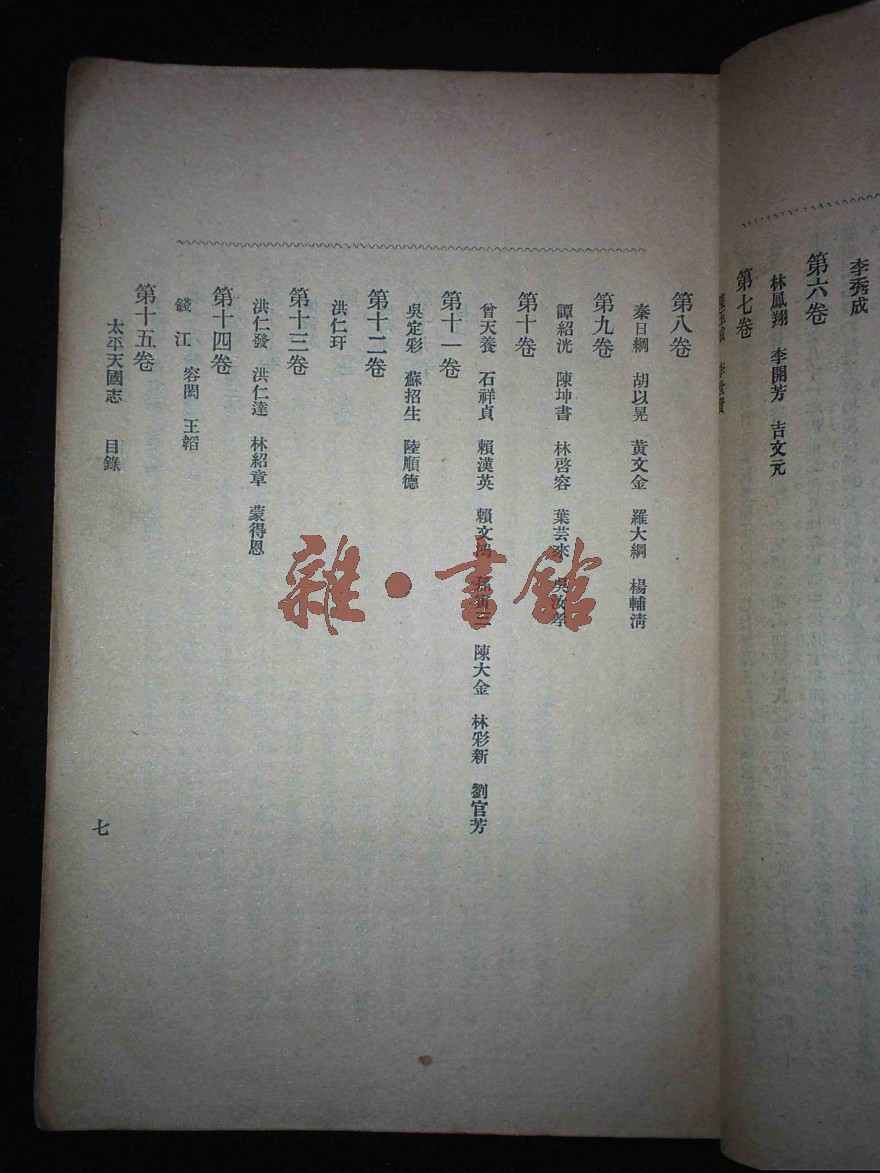 李秀成
第六卷
林鳳翔 李開芳 吉文元
第七卷
第八卷
秦日綱 胡以晃 黃文金 羅大綱 楊輔清
第九卷
譚紹洸 陳坤書 林啓容 葉芸來 吳汝孝
第十卷
曾天養 石祥貞 賴漢英 賴文鴻 陳大金 林彩新 劉官芳
第十一卷
吳定彩 蘇招生 陸順德
第十二卷
洪仁玕
第十三卷
洪仁發 洪仁達 林紹章 蒙得恩
第十四卷
錢江 容閎 王韜
第十五卷
太平天國志 目錄
七
雜·書館